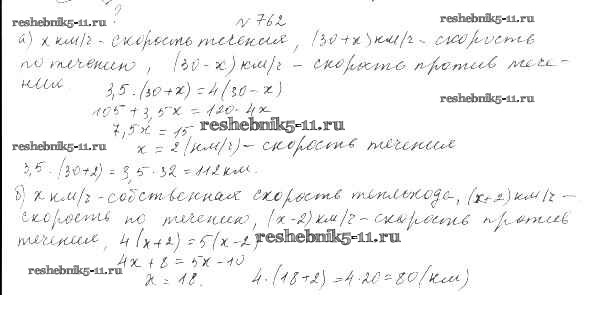 ?
N 762
reshebnik5-11.ru
reshebnik5-11.ru
а) x км/ч - скорость течения, (30+x) км/ч - скорость
по течению, (30-x) км/ч - скорость против тече-
ния.
3,5·(30+x)=4(30-x)
reshebnik5-11.ru
105+3,5x=120-4x
7,5x=15
reshebnik5-11.ru
x=2(км/ч) - скорость течения
reshebnik5-11.ru
3,5·(30+2)=3,5·32=112км.
б) x км/ч - собственная скорость теплохода, (x+2) км/ч -
скорость по течению, (x-2) км/ч - скорость против
течения, 4(x+2)=5(x-2)
reshebnik5-11.ru
4x+8=5x-10
reshebnik5-11.ru
x=18. 4·(18+2)=4·20=80(км)